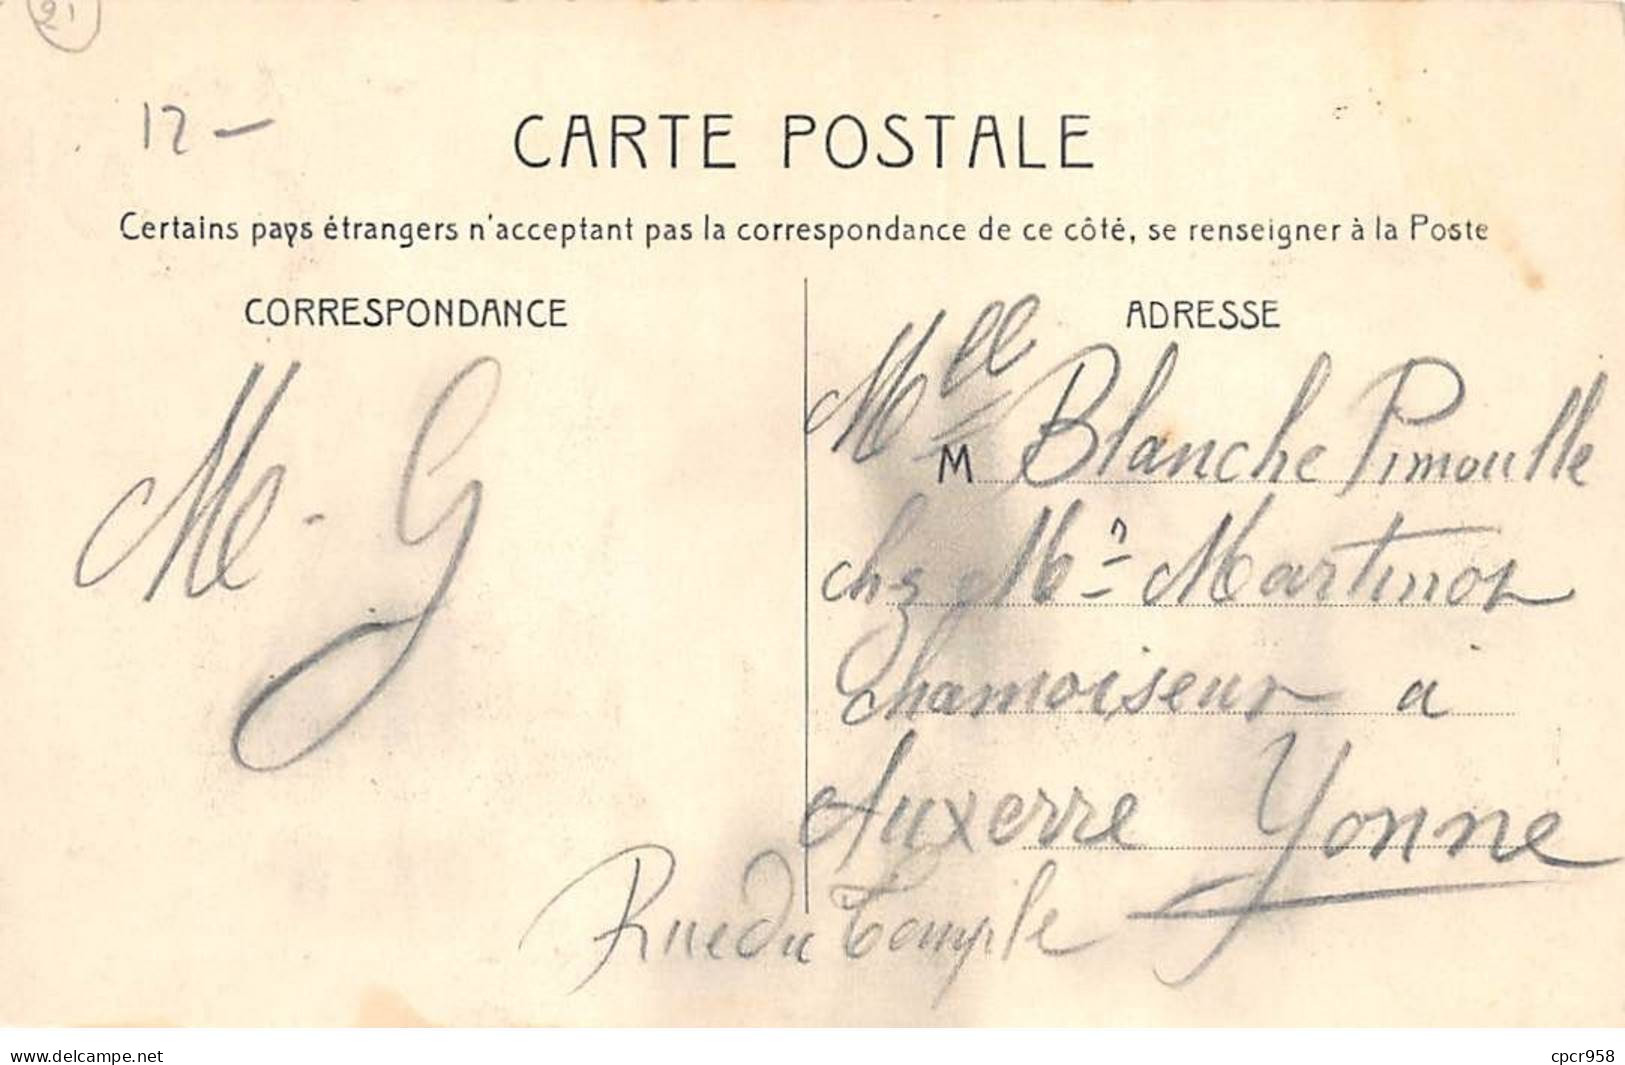 21
12 -
CARTE POSTALE
Certains pays étrangers n'acceptant pas la correspondance de ce côté, se renseigner à la Poste
CORRESPONDANCE
M - G
ADRESSE
Mlle
M Blanche Pimoulle
chz Mr Martinot
Chamoiseur a
Auxerre Yonne
Rue du Temple
www.delcampe.net
cpcr958